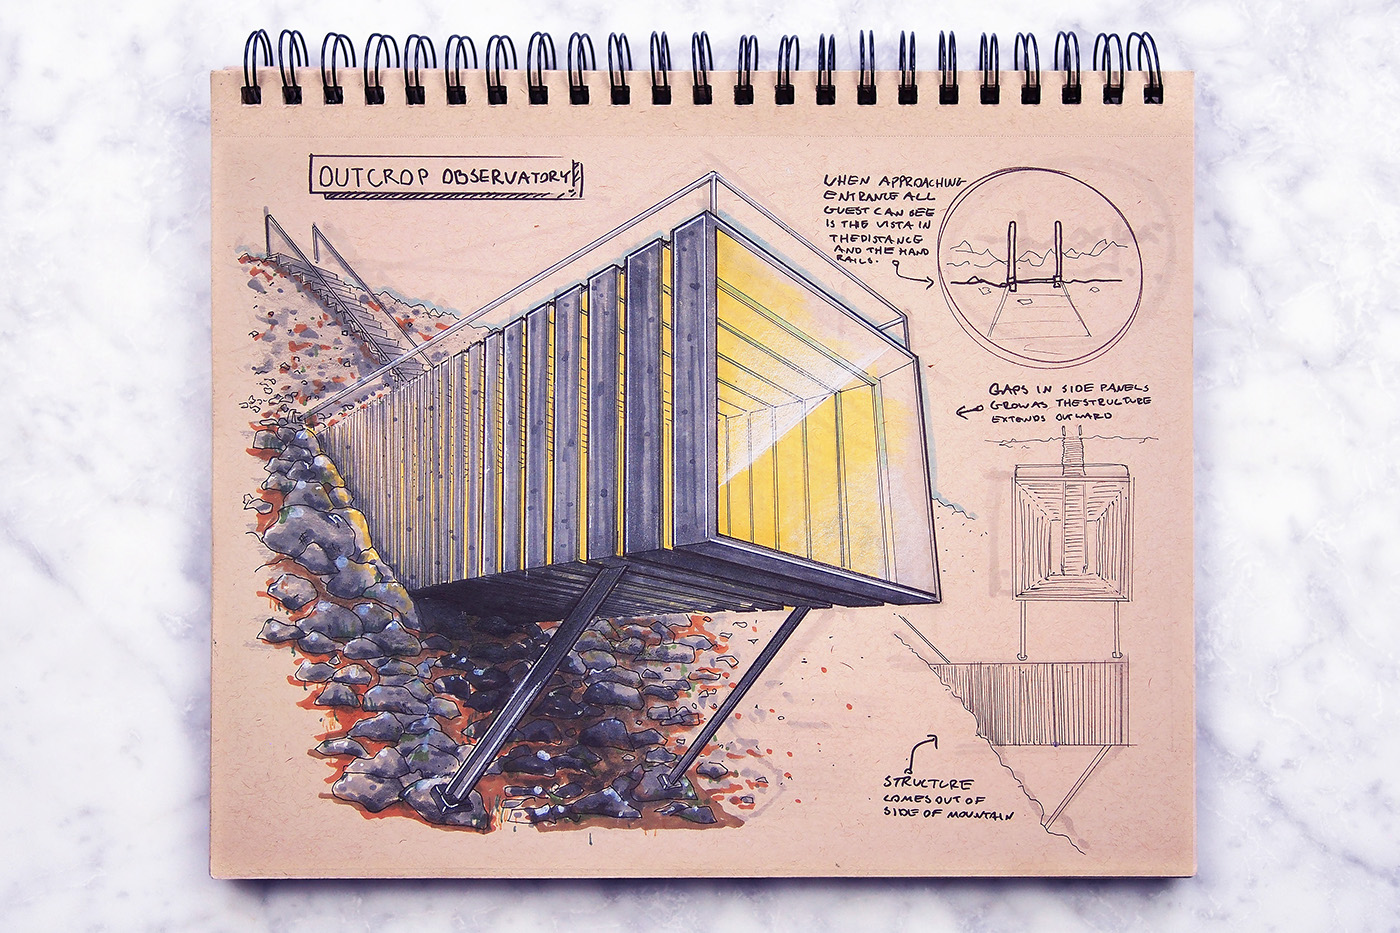 OUTCROP OBSERVATORY
WHEN APPROACHING
ENTRANCE ALL
GUEST CAN SEE
IS THE VISTA IN
THE DISTANCE
AND THE HAND
RAILS.
GAPS IN SIDE PANELS
GROW AS THE STRUCTURE
EXTENDS OUTWARD
STRUCTURE
COMES OUT OF
SIDE OF MOUNTAIN